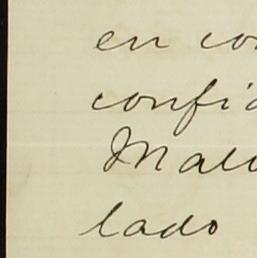 en co
confi
Mal
lado